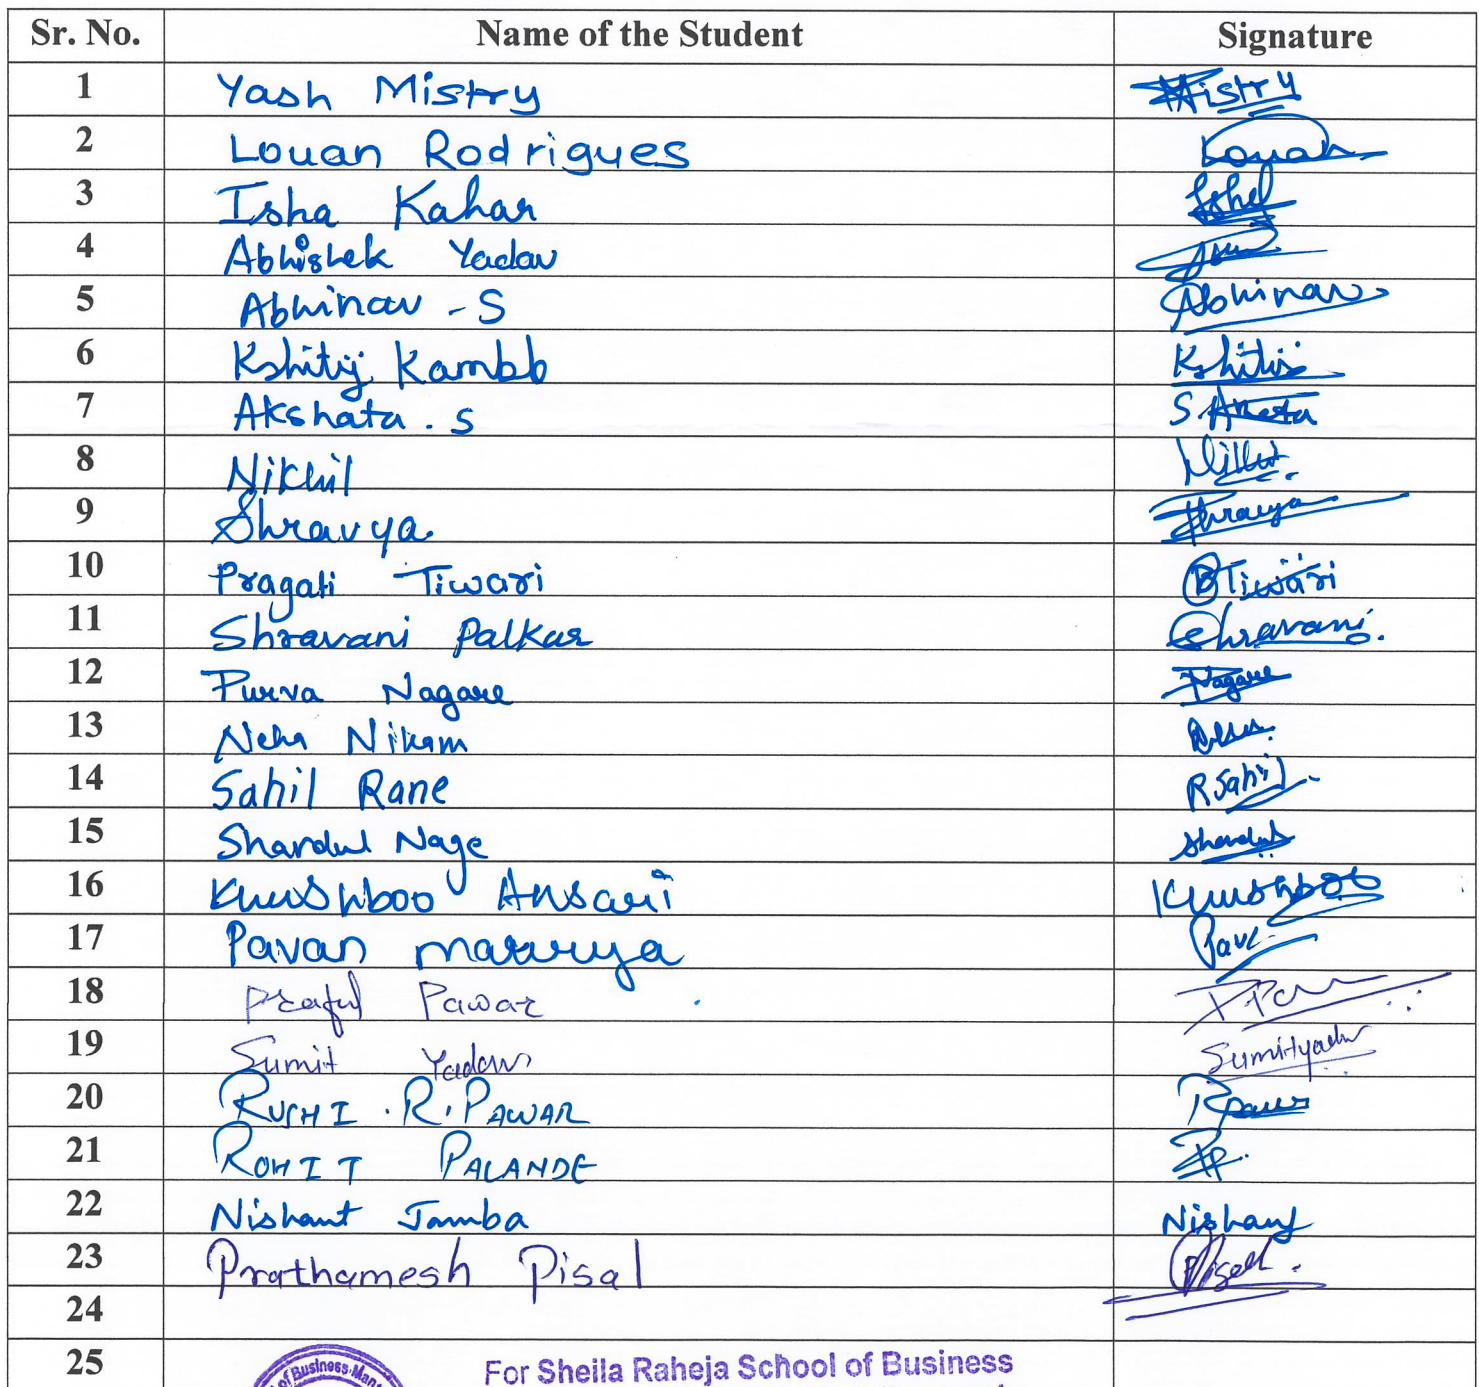 Sr. No. Name of the Student Signature
1 Yash Mistry Mistry
2 Louan Rodrigues Louan
3 Isha Kahar Isha
4 Abhishek Yadav
5 Abhinav - S Abhinav
6 Kshitij Kambb Kshitij
7 Akshata . S S.
8 Nikhil
9 Shravya Shravya
10 Pragati Tiwari PTiwari
11 Shravani Palkar Shravani.
12 Purva Nagare Nagare
13 Neha Nikam
14 Sahil Rane R Sahil
15 Shardul Nage Shardul
16 Khushboo Ansari Khushboo
17 Pavan maurya
18 Praful Pawar
19 Sumit Yadav Sumityadav
20 RUSHI . R. PAWAR
21 ROHIT PALANDE
22 Nishant Jamba Nishant
23 Prathamesh Pisal
24
25 of Business Man For Sheila Raheja School of Business